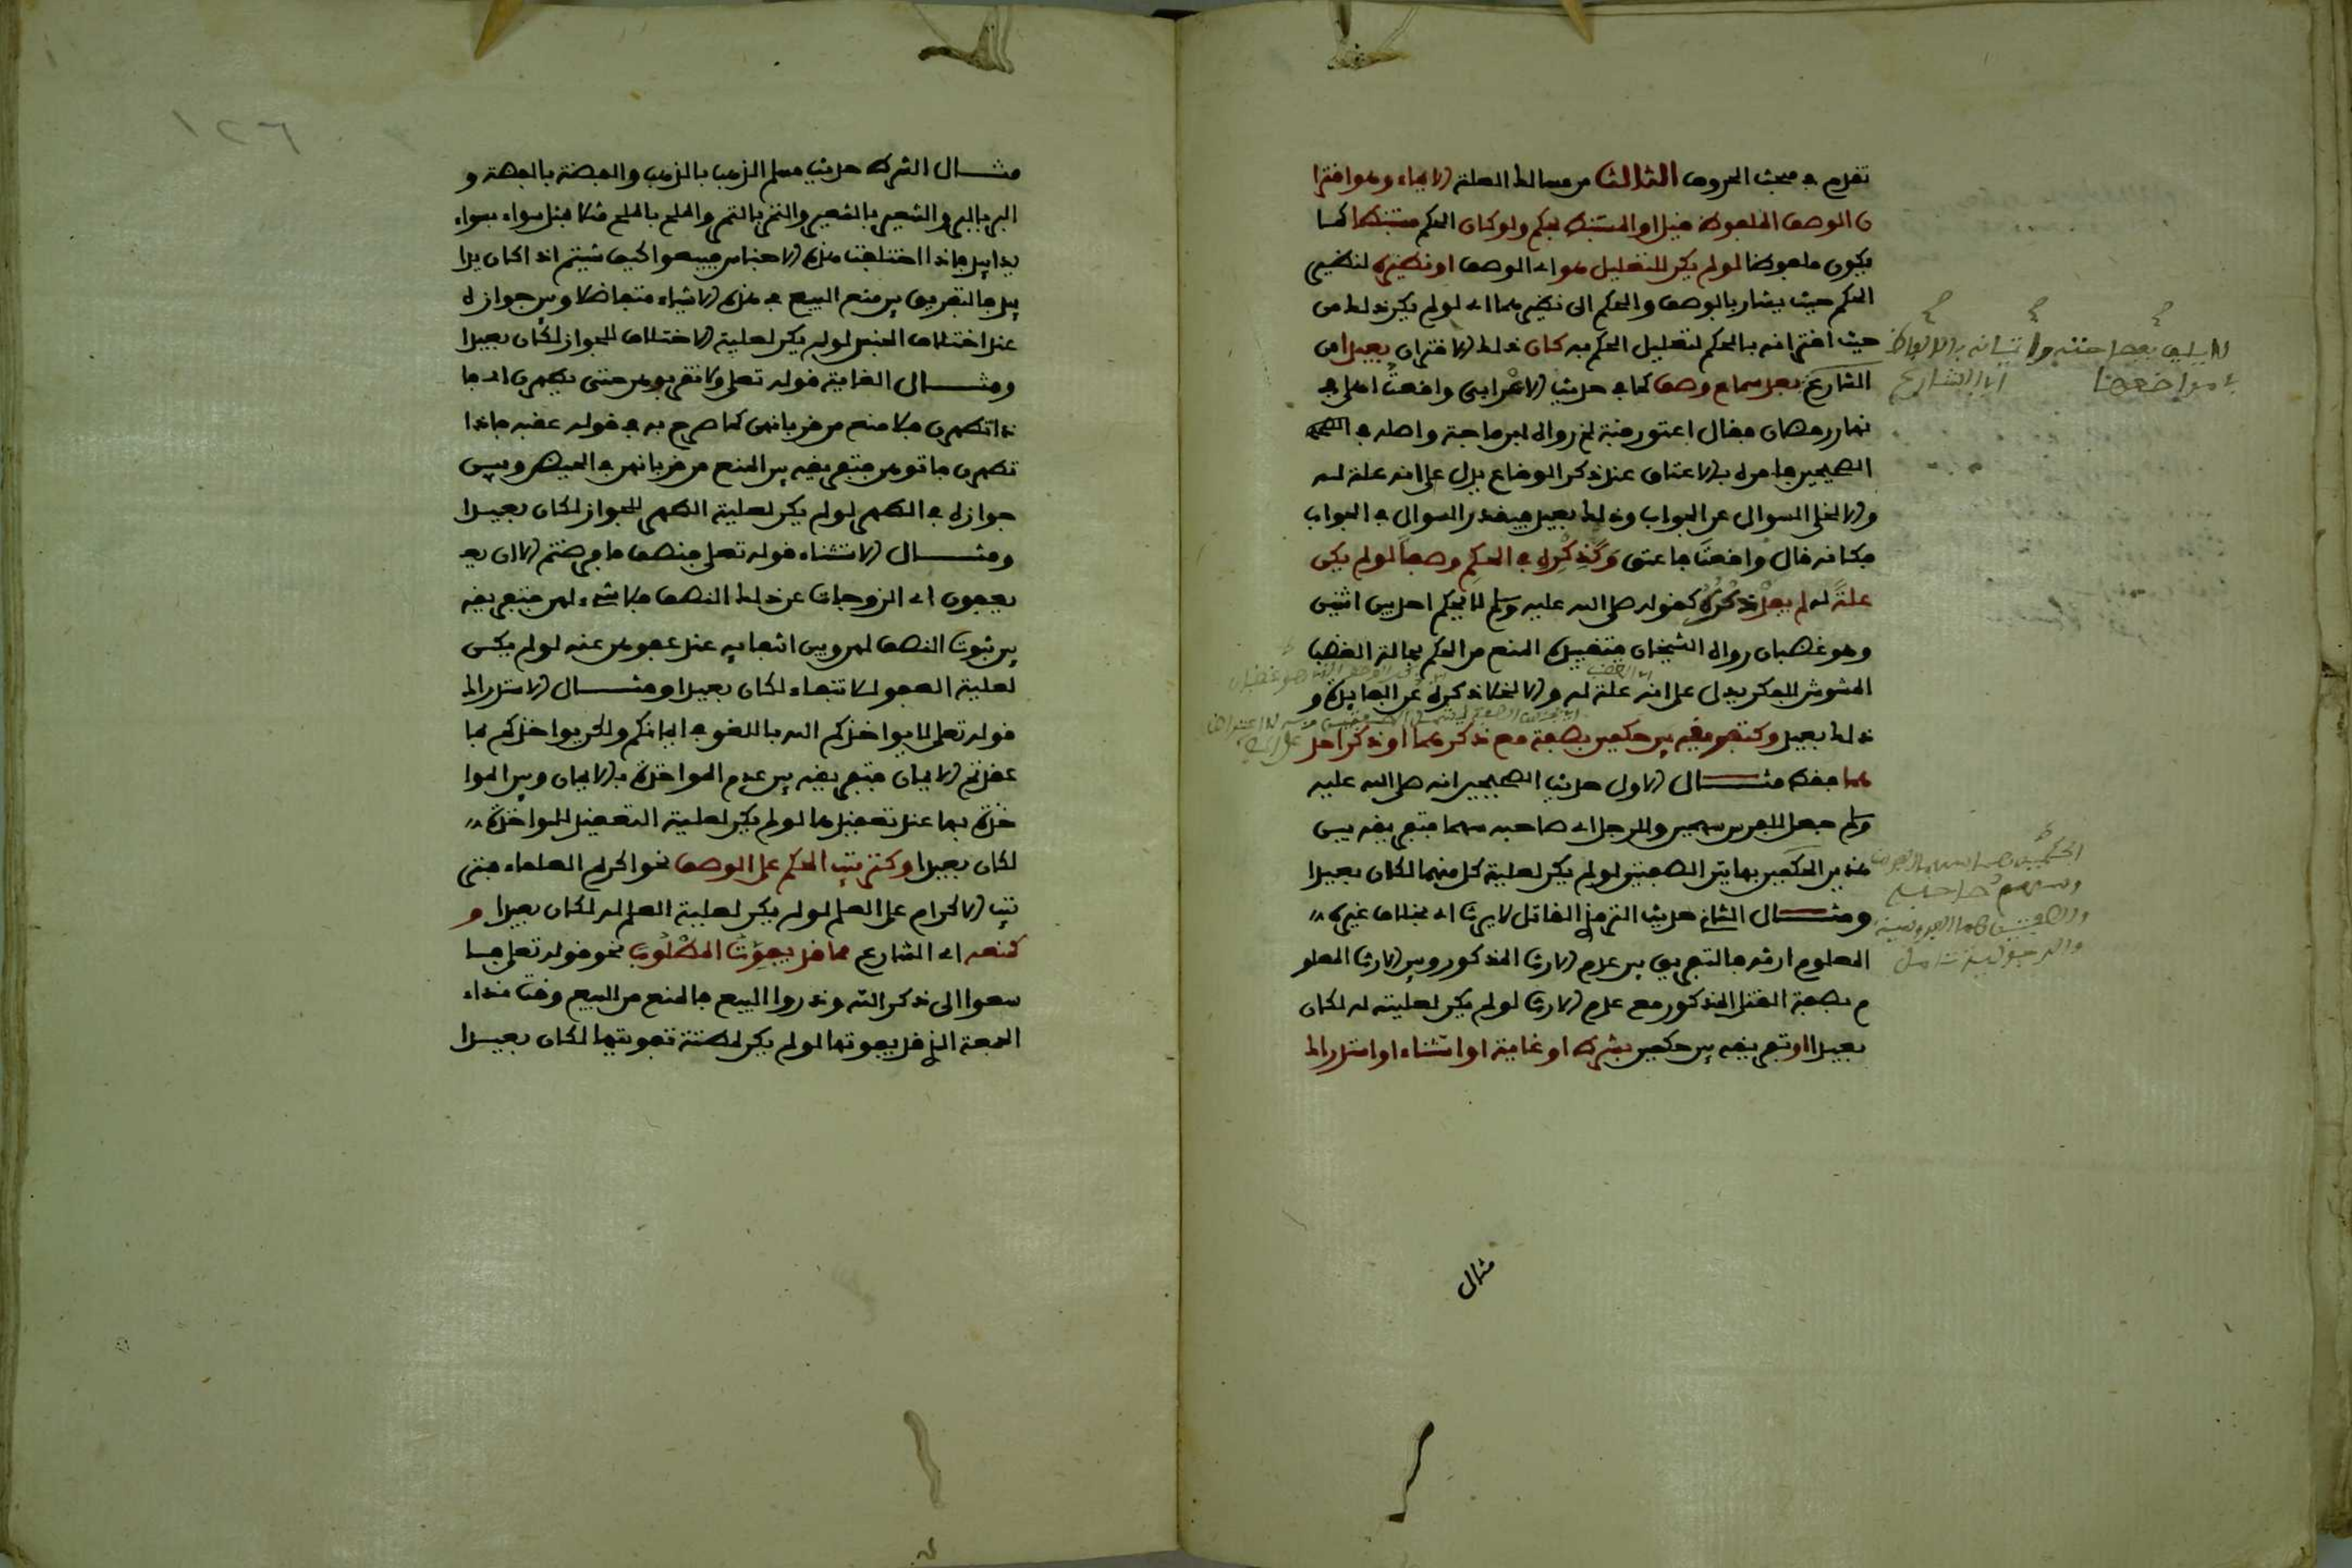 تقدم في مبحث الحروف الثالث من مسالك العلة الايماء وهو اقترا
ن الوصف الملفوظ قيل او المستنبط بحكم ولو كان الحكم مستنبطا كما
يكون ملفوظا لو لم يكن للتعليل هو اي الوصف او نظيره لنظير
الحكم حيث يشار بالوصف والحكم الى نظيرهما اي لو لم يكن ذلك من
حيث اقترانه بالحكم لتعليل الحكم به كان ذلك الاقتران بعيدا من
الشارع بعد سماع وصف كما في حديث الاعرابي واقعت اهلي في
نهار رمضان فقال اعتق رقبة الخ رواه ابن ماجة واصله في
الصحيحين فامره بالاعتاق عند ذكر الوقاع يدل على انه علة له
والا لخلى السوال عن الجواب وذلك بعيد فيقدر السوال في الجواب
فكانه قال واقعت فاعتق وكذكره في الحكم وصفا لو لم يكن
علة له لم يفد ذكره كقوله صلى الله عليه وسلم لا يحكم احد بين اثنين
وهو غضبان رواه الشيخان فتقييده المنع من الحكم بحالة الغضب
المشوش للفكر يدل على انه علة له والا لخلا ذكره عن الفايدة و
ذلك بعيد وكتفريقه بين حكمين بصفة مع ذكرهما او ذكر احد
هما فقط مثال الاول حديث الصحيحين انه صلى الله عليه
وسلم جعل للفرس سهمين وللرجل اي صاحبه سهما فتفريقه بين
هذين الحكمين بهاتين الصفتين لو لم يكن لعلية كل منهما لكان بعيدا
ومثال الثاني حديث الترمذي القاتل لا يرث اي بخلاف غيره
المعلوم ارثه فالتفريق بين عدم الارث المذكور وبين الارث المعلو
م بصفة القتل المذكور مع عدم الارث لو لم يكن لعليته له لكان
بعيدا او تفريقه بين حكمين بشرط او غاية او استثناء او استدراك
لا يليق بفصاحته واتيانه بالالفاظ
في مواضعها
اي الشارع
اي الغضب
مثال
١٢٦
مثال الشرط حديث مسلم الذهب بالذهب والفضة بالفضة و
البر بالبر والشعير بالشعير والتمر بالتمر والملح بالملح مثلا بمثل سواء بسواء
يدا بيد فاذا اختلفت هذه الاجناس فبيعوا كيف شيتم اذا كان يدا
بيد فالتفريق بين منع البيع في هذه الاشياء متفاضلا وبين جوازه
عند اختلاف الجنس لو لم يكن لعلية الاختلاف للجواز لكان بعيدا
ومثال الغاية قوله تعلى ولا تقربوهن حتى يطهرن اي فا
ذا تطهرن فلا منع من قربانهن كما صرح به في قوله عقبه فاذا
تطهرن فاتوهن فتفريقه بين المنع من قربانهن في الحيض وبين
جوازه في الطهر لو لم يكن لعلية الطهر للجواز لكان بعيدا
ومثال الاستثناء قوله تعلى فنصف ما فرضتم الا ان يع
يعفون اي الزوجات عن ذلك النصف فلا شيء لهن فتفريقه
بين ثبوت النصف لهن وبين انتفايه عند عفوهن عنه لو لم يكن
لعلية العفو للانتفاء لكان بعيدا ومثال الاستدراك
قوله تعلى لا يواخذكم الله باللغو في ايمانكم ولكن يواخذكم بما
عقدتم الايمان فتفريقه بين عدم المواخذة بالايمان وبين الموا
خذة بها عند تعقيدها لو لم يكن لعلية التعقيد للمواخذة
لكان بعيدا وكترتيب الحكم على الوصف نحو اكرم العلماء فتر
تيب الاكرام على العلم لو لم يكن لعلية العلم له لكان بعيدا و
كمنعه اي الشارع مما قد يفوت المطلوب نحو قوله تعلى فا
سعوا الى ذكر الله وذروا البيع فالمنع من البيع وقت نداء
الجمعة الذي قد يفوتها لو لم يكن لمظنة تفويتها لكان بعيدا